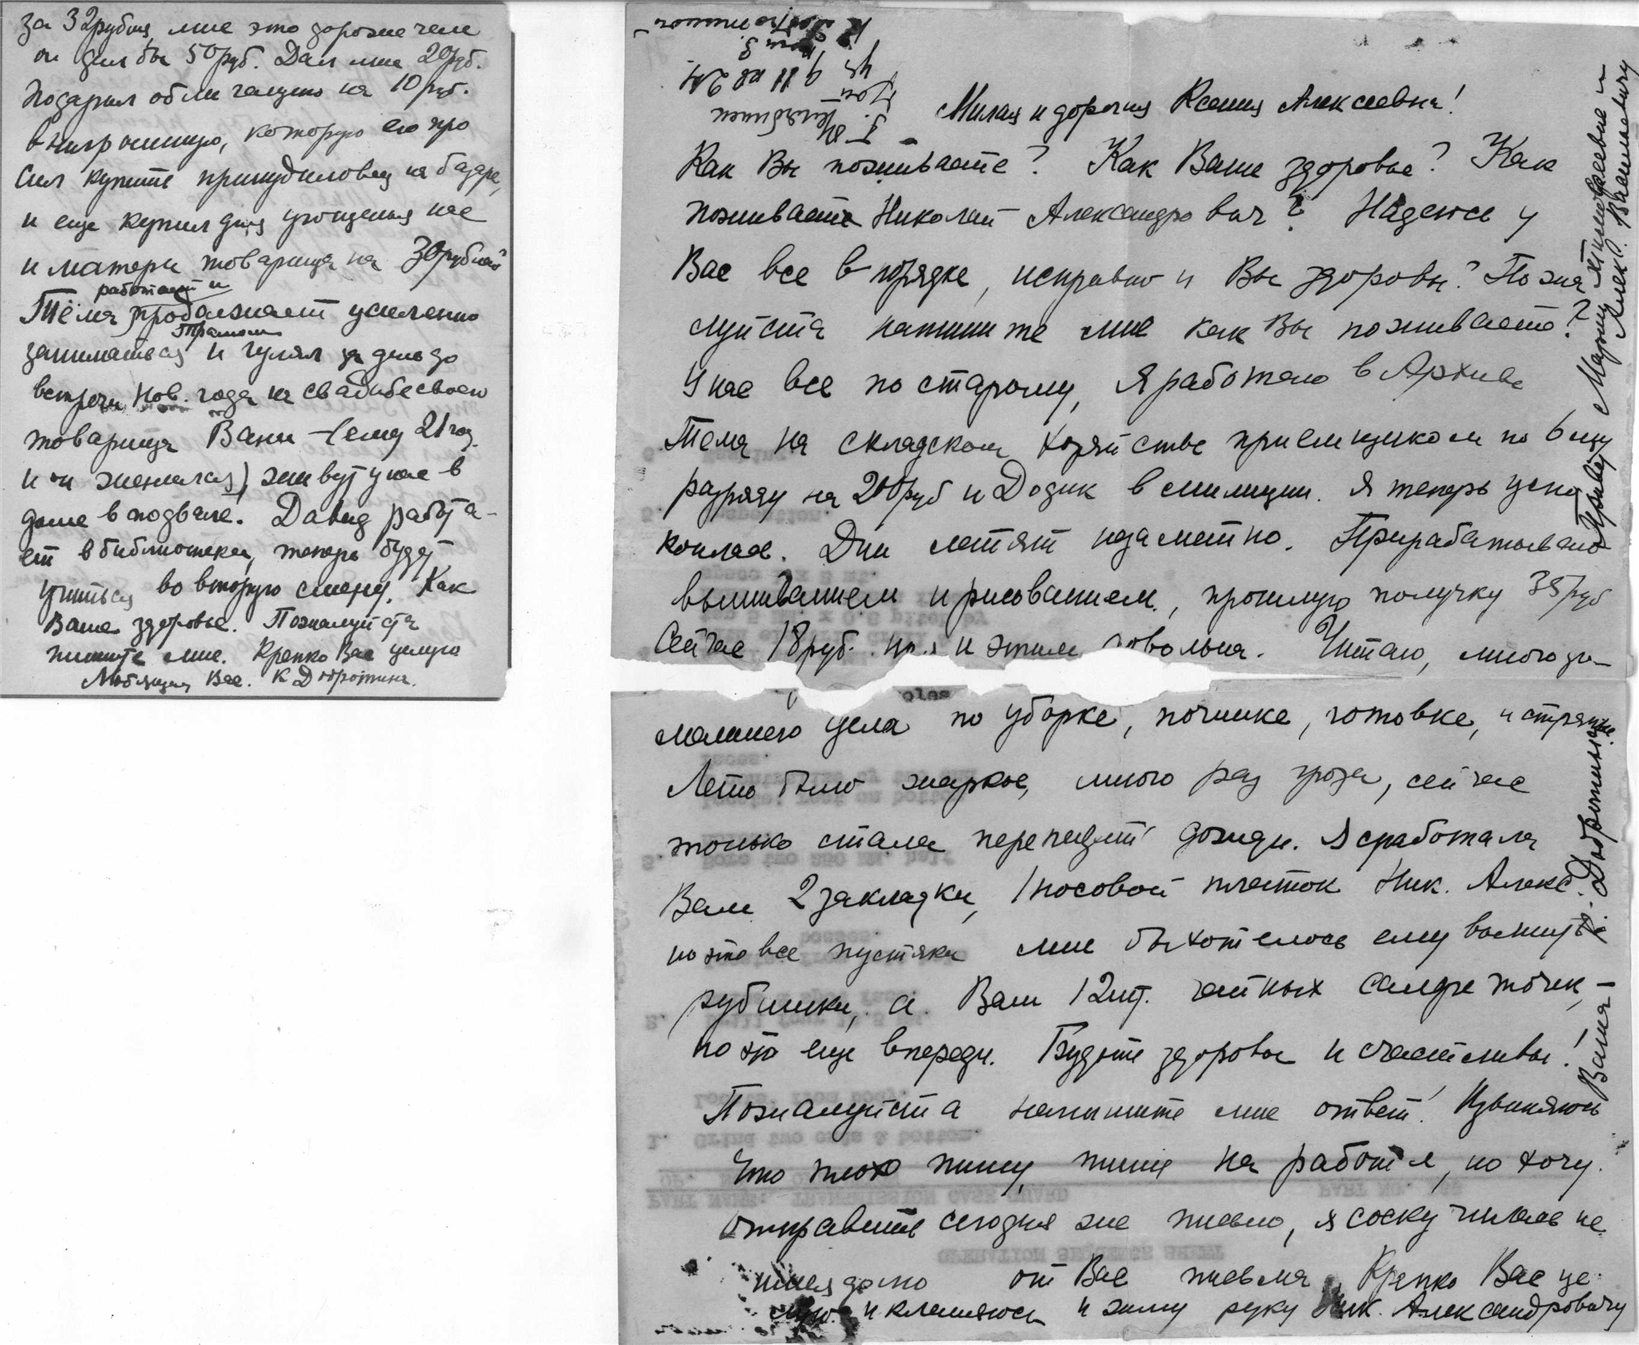 за 32 рубля, мне это дороже чем
он дал бы 50 руб. Дал мне 20 руб.
Подарил облигацию на 10 руб.
выигрышную, которую его про
сил купить принудиловец на базаре,
и еще купил для угощения нас
и матери товарища на 30 рублей
работает и
Тёма продолжает усиленно
заниматься и гулял за день до
встречи Нов. года на свадьбе своего
товарища Вани – (ему 21 год
и он женился) живут у нас в
доме в подвале. Давид работа-
ет в библиотеке, теперь будет
учиться во вторую смену. Как
Ваше здоровье. Пожалуйста
пишите мне. Крепко Вас целую
Любящая Вас. К Добротина.
г. Челябинск
К Добротиной
Милая и дорогая Ксения Алексеевна!
Как Вы поживаете? Как Ваше здоровье? Как
поживает Николай Александрович? Надеюсь у
Вас все в порядке, исправно и Вы здоровы? Пожа
луйста напишите мне как Вы поживаете?
У нас все по старому, я работаю в Архиве
Тёма на складском хозяйстве приемщиком по 6 му
разряду на 200 руб и Додик в милиции. Я теперь успо
коилась. Дни летят незаметно. Прирабатываю
вышиванием и рисованием, прошлую получку 35 руб
Сейчас 18 руб. и этим довольна. Читаю, много до-
машнего дела по уборке, починке, готовке, и стряпне.
Лето было жаркое, много раз гроза, сейчас
только стали перепадать дожди. Я сработала
Вам 2 закладки, 1 носовой платок Ник. Алекс.
но это все пустяки мне бы хотелось ему вышить
рубашки, а Вам 12 шт. чайных салфеточек, –
но это еще впереди. Будьте здоровы и счастливы!
Пожалуйста напишите мне ответ! Извиняюсь
что плохо пишу, пишу на работе, но хочу
отправить сегодня же письмо, я соскучилась не
имея долго от Вас письма. Крепко Вас це-
лую и кланяюсь и жму руку Ник. Александровичу
Ваша – К. Добротина.
Привет Марии Тимофеевне и
Алек. Васильевичу